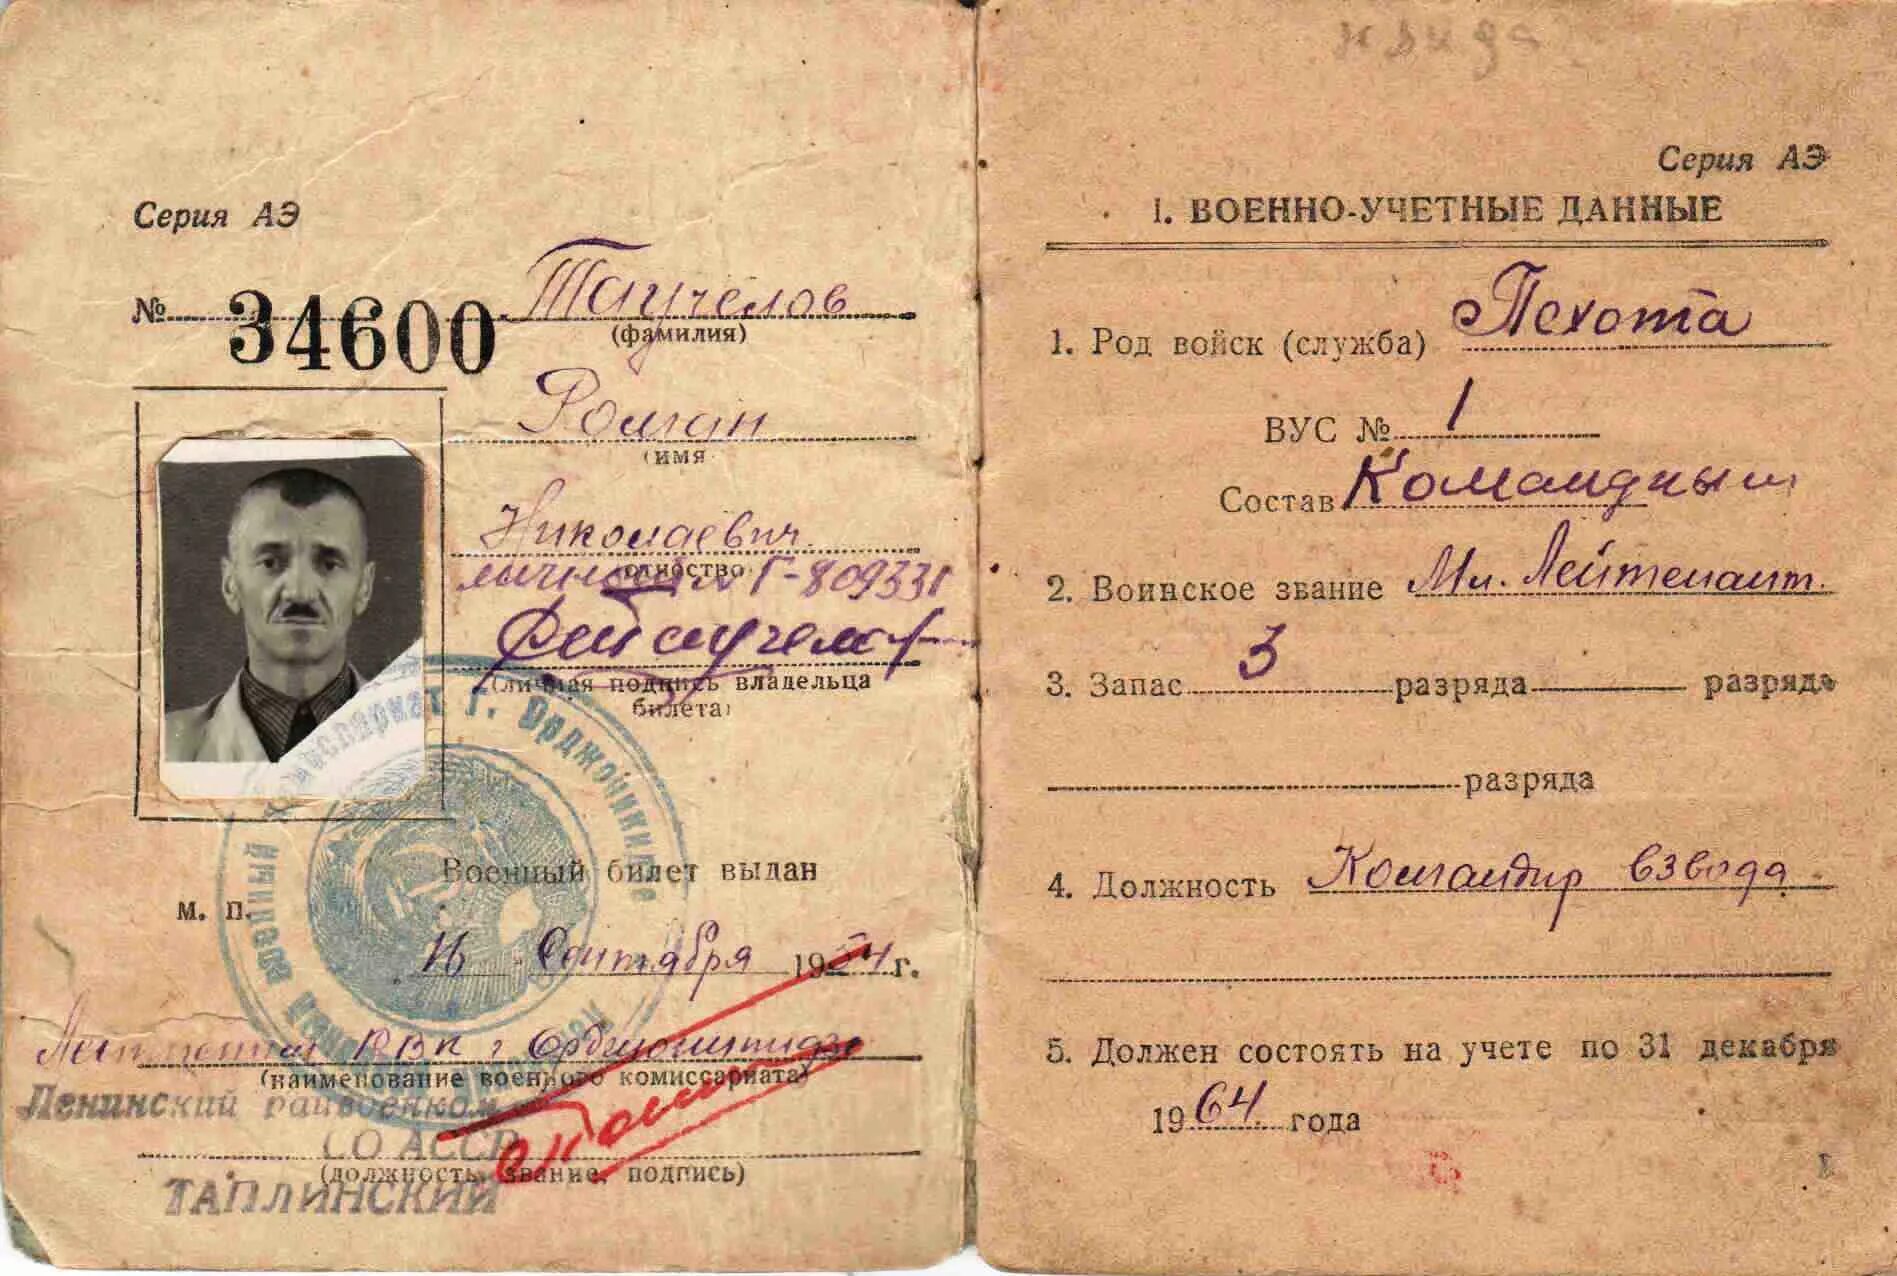 Серия АЭ
№ 34600
Таучелов
(фамилия)
Роман
(имя
Николаевич
отчество
личный № Г-809331
(личная подпись владельца
билета)
г. Орджоникидзе
Военный билет выдан
М. П.
16 Сентября 1954 г.
Ленинский РВК г Орджоникидзе
(наименование военного комиссариата)
Ленинский райвоенком
СО АССР
(должность, звание, подпись)
ТАПЛИНСКИЙ
Серия АЭ
1. ВОЕННО-УЧЕТНЫЕ ДАННЫЕ
1. Род войск (служба) Пехота
ВУС № 1
Состав Командный
2. Воинское звание Мл. Лейтенант.
3. Запас 3 разряда разряда
разряда
4. Должность Командир взвода
5. Должен состоять на учете по 31 декабря
1964 года